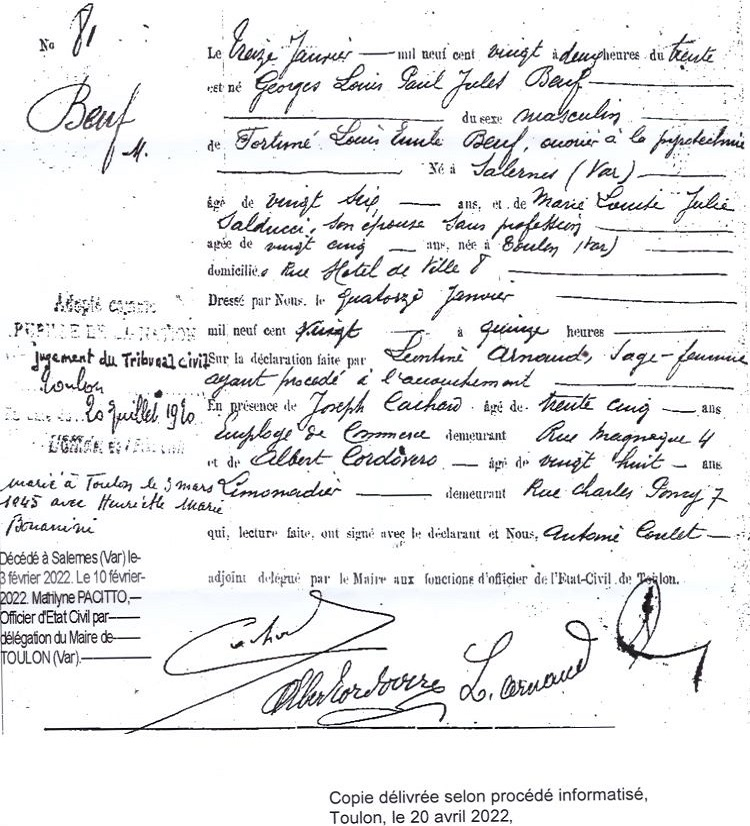 No 81
Beuf
M.
Le treize Janvier — mil neuf cent vingt à deux heures du trente
est né Georges Louis Paul Jules Beuf
du sexe masculin
de Fortuné Louis Emile Beuf, ouvrier à la pyrotechnie
Né à Salernes (Var)
âgé de vingt six — ans, et de Marie Louise Julie
Salducci, son épouse sans profession
agée de vingt cinq — ans, née à Toulon (Var)
domiciliés Rue Hotel de Ville 8
Dressé par Nous, le quatorze Janvier
mil neuf cent vingt — à quinze heures
Sur la déclaration faite par Léontine Arnaud, Sage-femme
ayant procédé à l'accouchement
En présence de Joseph Cachard âgé de trente cinq — ans
Employé de Commerce demeurant Rue Magnaque 4
et de Albert Cordovero — âgé de vingt huit — ans
Limonadier — demeurant Rue Charles Poncy 7
qui, lecture faite, ont signé avec le déclarant et Nous, Antoine Coulet —
adjoint délégué par le Maire aux fonctions d'officier de l'Etat-Civil de Toulon.
Adopté comme
PUPILLE DE LA NATION
jugement du Tribunal civil
Toulon
20 Juillet 1920
marié à Toulon le 3 mars
1945 avec Henriette Marie
Bonannini
Décédé à Salernes (Var) le-
3 février 2022. Le 10 février-
2022. Marilyne PACITTO,—
Officier d'Etat Civil par——
délégation du Maire de——
TOULON (Var).————
Cachard
Albert Cordovero
L. Arnaud
Copie délivrée selon procédé informatisé,
Toulon, le 20 avril 2022,